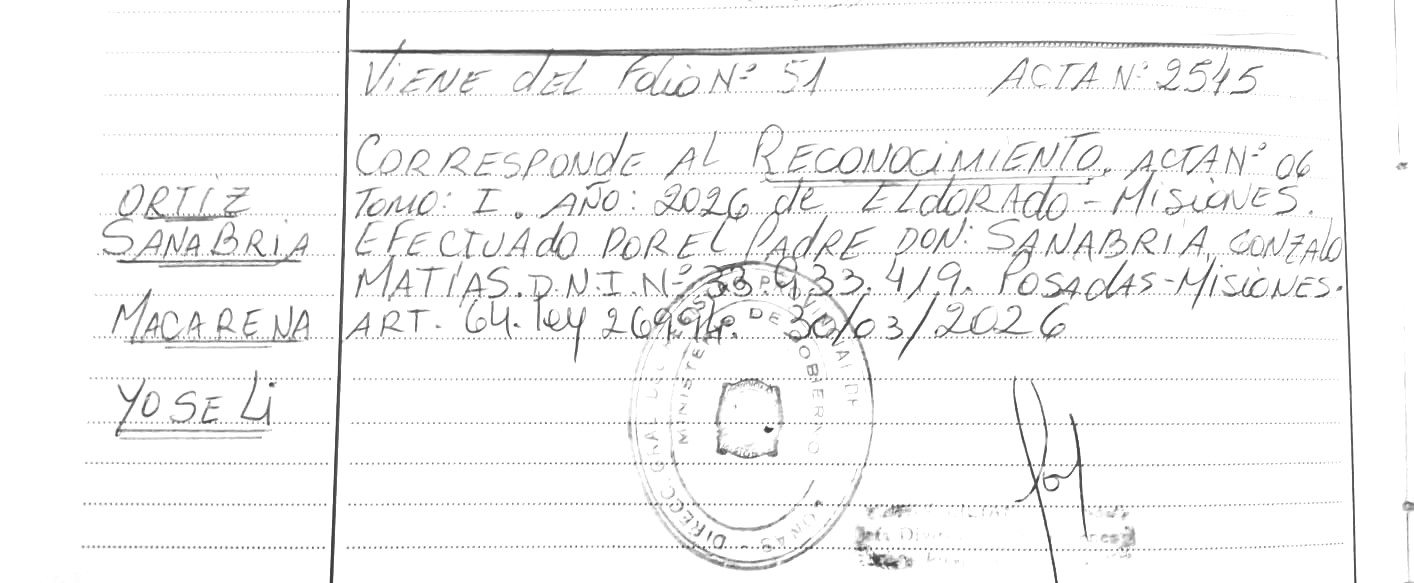 VIENE DEL FOLIO Nº 51 ACTA Nº 2545
CORRESPONDE AL RECONOCIMIENTO. ACTA Nº 06
TOMO: I. AÑO: 2026 de ELdORADO - MISIONES.
EFECTUADO POR EL PADRE DON: SANABRIA, GONZALO
MATÍAS. D.N.I. Nº 33.933.419. POSADAS-MISIONES.
ART. 64. ley 26994. 30/03/2026
ORTIZ
SANABRIA
MACARENA
YOSELI
MINISTERIO DE GOBIERNO
DIRECC. GRAL DEL